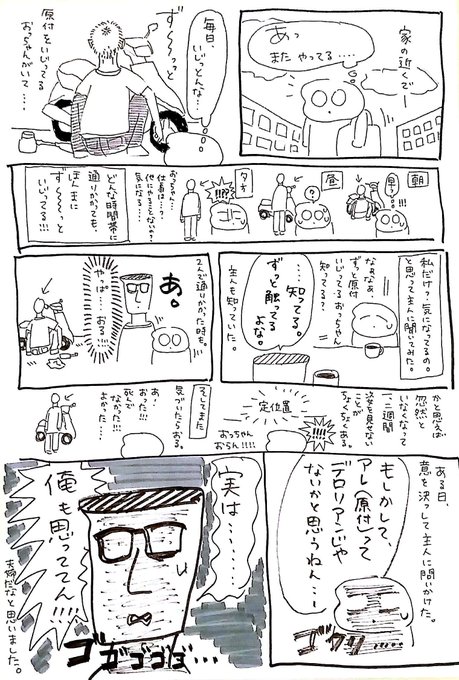 家の近くでー
あっ
またやってる‥‥
毎日、
いじっとんな…
ず〜〜っと
原付をいじってる
おっちゃんがいて‥‥
朝
早っ
!!!
昼
?
夕方
!!!?
おっちゃん…
仕事は…?
他にやることない??
気になる‥‥
どんな時間帯に
通りかかっても、
ほんまに
ず〜〜っと
いじってる!!!
私だけ?気になってるの。
と思って主人に聞いてみた。
なぁなぁ、
ずっと原付
いじってるおっちゃん
知ってる?
‥‥知ってる。
ずっと触ってる
よな。
主人も知っていた。
2人で通りかかった時も。
あ。
やっぱ…おる!!!
かと思えば
忽然と
いなくなって
一二週間
姿を見せない
ことが
ちょくちょくある。
!!!!
定位置
おっちゃん
おらん!!!!
そしてまた
気づいたらおる。
あっ
おった!!!
死んで
なかった!!!
よかった…
ある日、
意を決っして主人に問いかけた。
もしかして、
アレ(原付)って
デロリアンじゃ
ないかと思うねん…
ゴクッ
実は‥‥‥
俺も思っててん!!!!
ゴゴゴゴゴ…
夫婦だなと思いました。